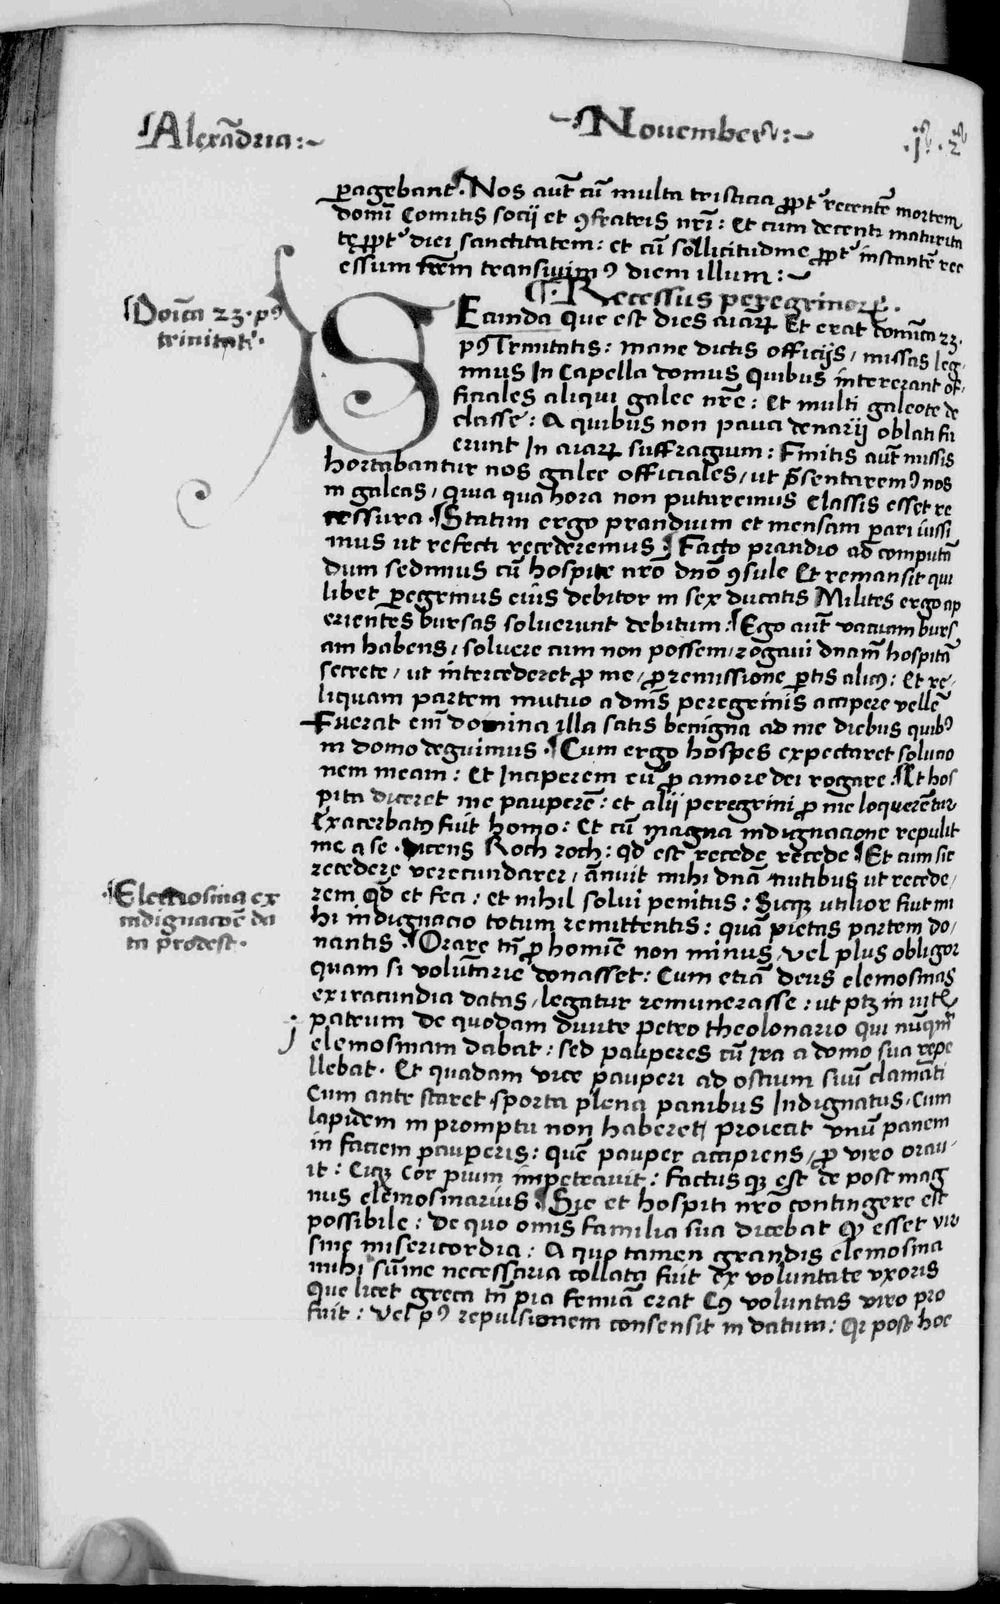 Alexādria:~
~:November:~
.1. .2.
pagebant. Nos aūt cū multa tristicia ꝓpt' recentē mortem
domī Comitis socij et ꝯfratris nrī: Et cum decenti maturita
te ꝓpt' diei sanctitatem: et cū sollicitudine ꝓpt' instantē rec
essum nrēm transiuimꝰ diem illum:~
¶. Recessus peregrinoꝝ.
Doīca 23. pꝰ
trinitatē.
SEcunda que est dies aīarꝝ Et erat domīca 23.
pꝰ Trinitatis: mane dictis officijs, missas leg
imus In Capella domus Quibus intererant of
ficiales aliqui galee nrē: Et multi galeote de
classe: A quibus non pauci denarij oblati fu
erunt In aīarꝝ suffragium: Finitis aūt missis
hortabantur nos galee officiales, ut p̄sentaremꝰ nos
in galeas, quia qua hora non putaremus Classis esset re
cessura. ¶Statim ergo prandium et mensam pari iussi
mus ut refecti recederemus. ¶Facto prandio ad computā
dum sedimus cū hospite nrō dnō ꝯsule Et remansit qui
libet peregrinus eius debitor in sex ducatis Milites ergo ap
erientes bursas soluerunt debitum: ¶Ego aūt vacuam burs
am habens, soluere cum non possem, rogaui dnam̄ hospitā
secrete, ut intercederet ꝓ me, ꝓ remissione ꝑtis alicꝰ: Et re,
liquam partem mutuo a dnīs peregrinis accipere vellē
Fuerat enī domina illa satis benigna ad me diebus quibꝰ
in domo deguimus. ¶Cum ergo hospes expectaret solucio
nem meam: Et Inciperem eū ꝓ amore dei rogare: ¶Et hos
pita diceret me pauperē: et alij peregrini ꝓ me loquerētur
Exacerbatꝰ fuit homo: Et cū magna indignacione repulit
me a se. dicens Roch roch: qd est recede recede ¶Et cum sic
recedere verecundarer, annuit mihi dnā nutibus ut recede,
Elemosina ex
indignacōe da
ta prodest.
rem qd et feci: et nihil solui penitus: Sicqꝫ utilior fuit mi
hi indignacio totum remittentis: quā pietas partem do,
nantis. ¶Orare tn̄ ꝓ homīe non minus, vel plus obligor
quam si volūtarie donasset: Cum etiā deus elemosinas
ex iracundia datas, legatur remunerasse: ut ptꝫ in vit̄
patrum de quodam diuite petro theolonario qui nūqm̄
elemosinam dabat: sed pauperes cū ira a domo sua repe
llebat. Et quadam vice pauperi ad ostium suū clamāti
Cum ante staret sporta plena panibus Indignatus, cum
lapidem in promptu non haberet, proiecit vnū panem
in faciem pauperis: quē pauper accipiens, ꝓ viro orau
it: Cuiꝰ cor pium impetrauit: factus qꝫ est de post mag
nus elemosinarius ¶Sic et hospiti nrō contingere est
possibile: de quo omīs familia sua dicebat ꝙ esset vir
sine misericordia: A quo tamen grandis elemosina
mihi sūme necessaria collata fuit ex voluntate vxoris
Que licet greca tn̄ pia femiā erat Cꝰ voluntas viro pro
fuit: Vel pꝰ repulsionem consensit in datum: Qr post hoc